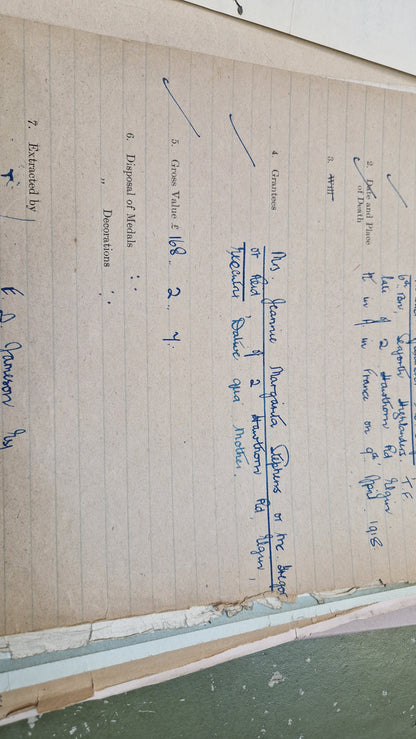 6th Bn, Seaforth Highlanders. T.F.
2. Date and Place late of 2 Hawthorn Rd Elgin
of Death K in A in France on 9th April 1918
3. Will
4 Grantees Mrs Jeannie Margaret Stephens or Mc Gregor
or Reid, of 2 Hawthorn Rd, Elgin,
Executrix Dative qua Mother.
5. Gross Value £ 168 . 2 . 7.
6. Disposal of Medals :
„ Decorations :
7. Extracted by E. D. Jameson